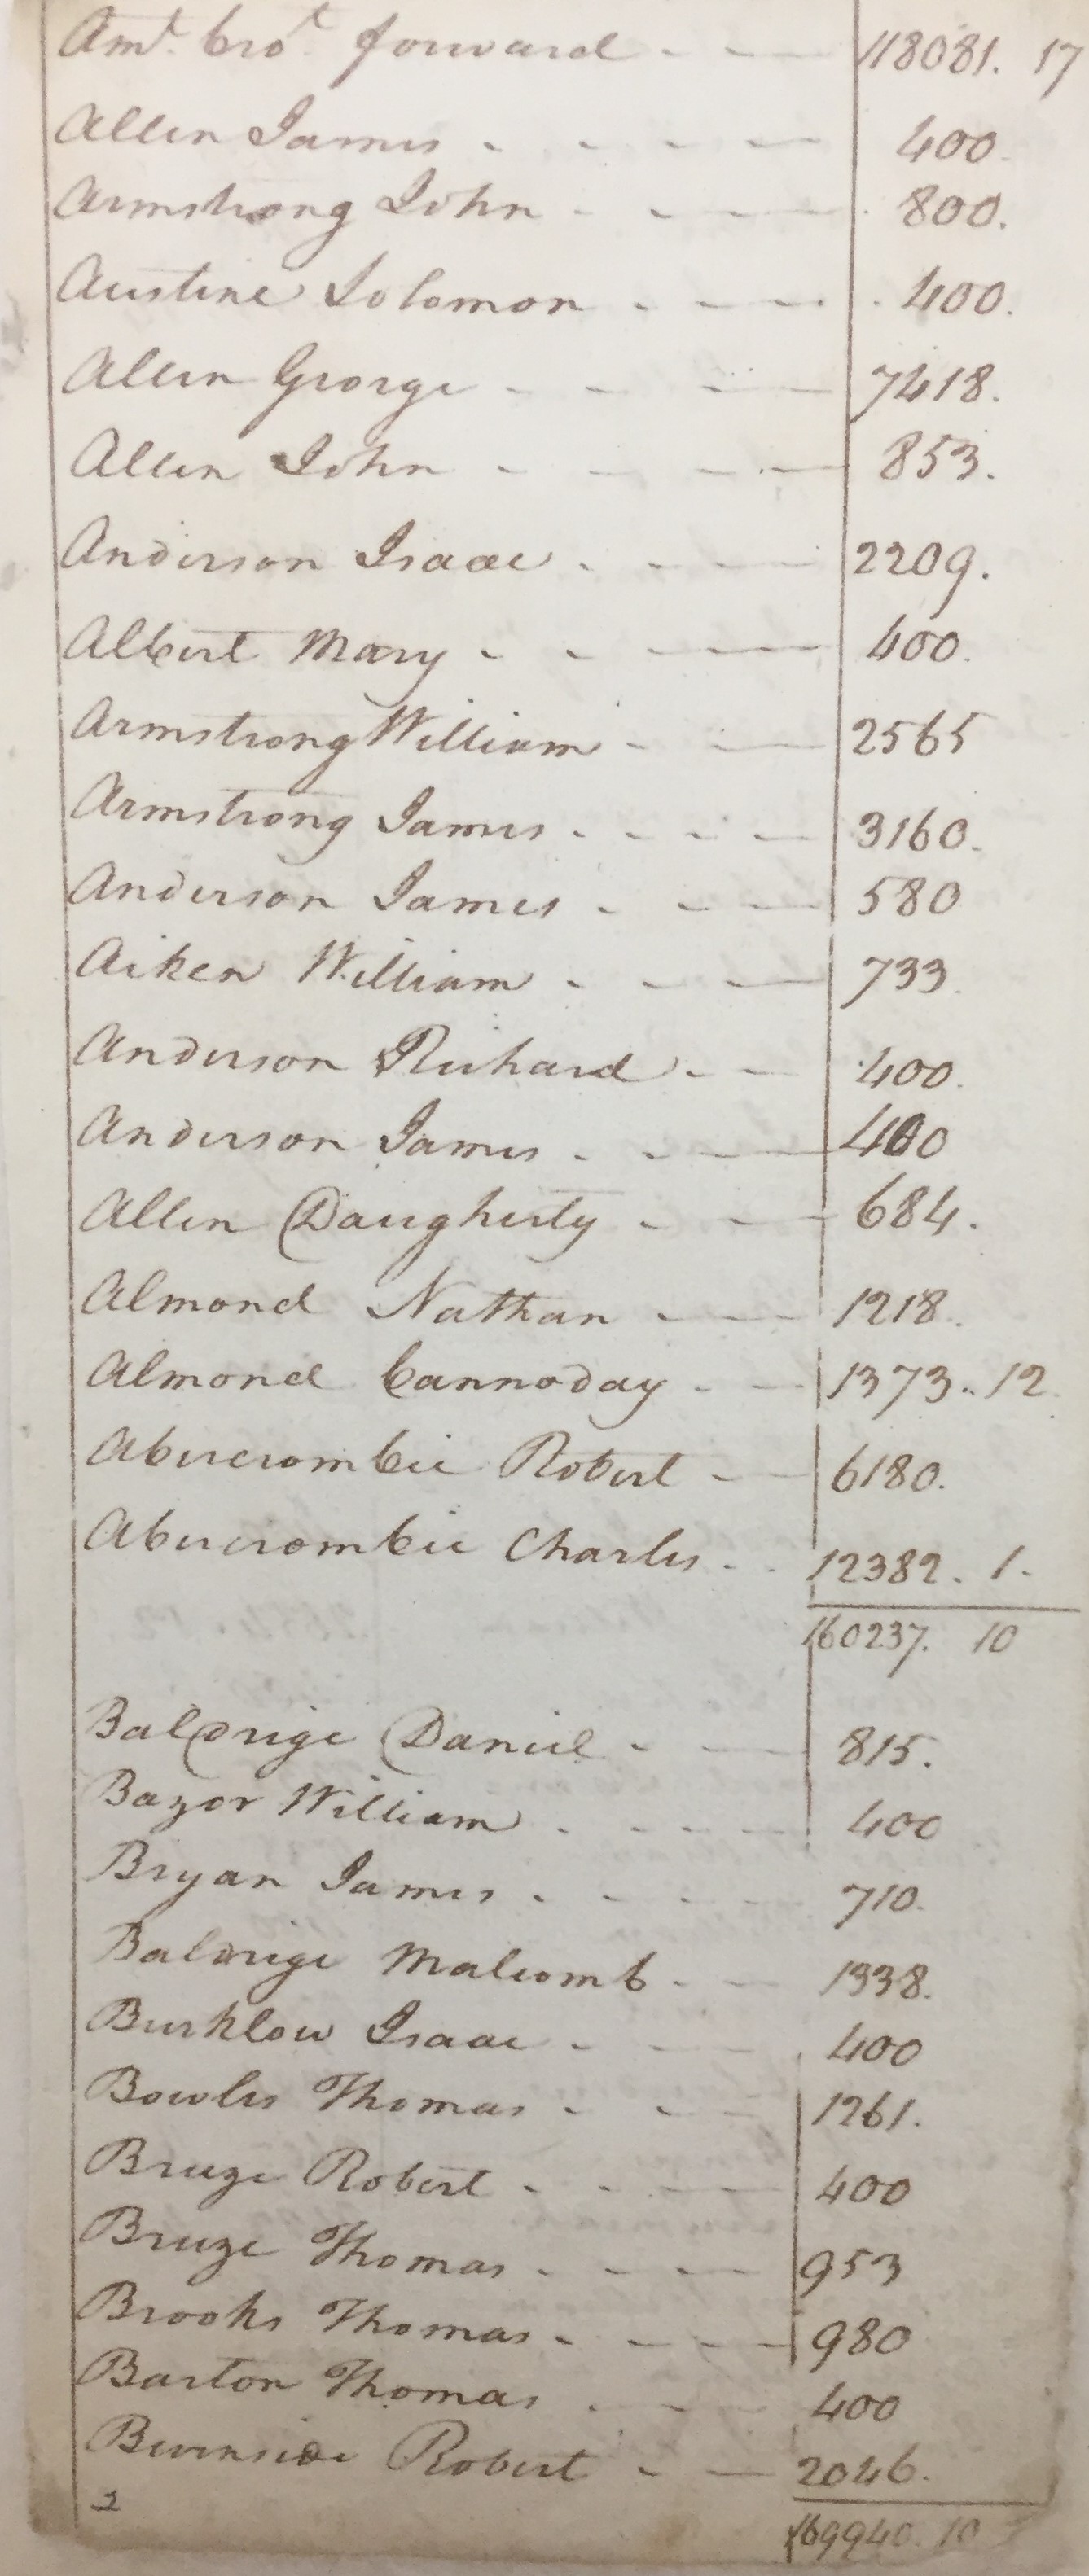 Amt. brot. forward - — 118081. 17
Allen James - - - — 400
Armstrong John - - — 800.
Austine Solomon - - - — 400.
Allen George - - — 7418.
Allen John - - - — 853.
Anderson Isaac - - — 2209.
Albert Mary - - — 400.
Armstrong William - — 2565
Armstrong James - - - — 3160.
Anderson James - - — 580
Aiken William - - — 733
Anderson Richard - — 400.
Anderson James - - — 400
Allen Daugherty - - — 684.
Almond Nathan - — 1218.
Almond Cannoday - — 1373. 12
Abercrombie Robert - — 6180.
Abercrombie Charles - - 12382. 1.
160237. 10
Baldrige Daniel - — 815.
Bazor William - - — 400
Bryan James - - - — 710.
Baldrige Malcomb - — 1338.
Burklow Isaac - - — 400
Bowles Thomas - - — 1261.
Bruze Robert - - — 400
Bruze Thomas - - - — 953
Brooks Thomas - - - — 980
Barton Thomas - - — 400
Burnside Robert - — 2046.
2
169940. 10